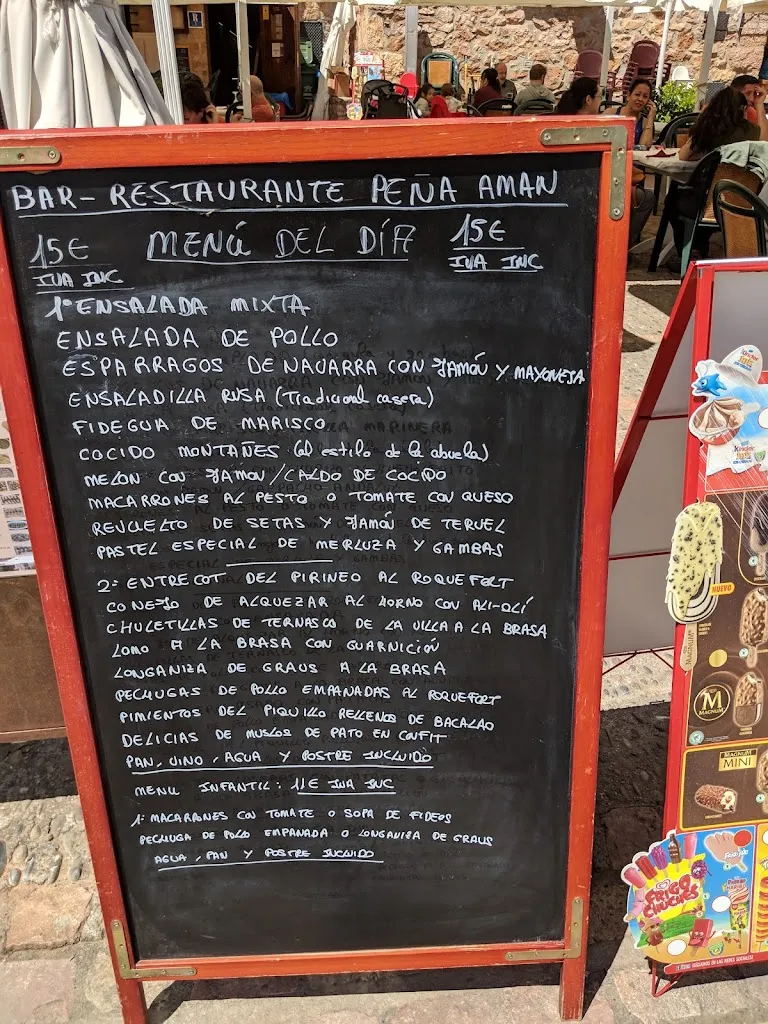 BAR-RESTAURANTE PEÑA AMAN
15€ MENÚ DEL DÍA 15€
IVA INC IVA INC
1º ENSALADA MIXTA
ENSALADA DE POLLO
ESPARRAGOS DE NAVARRA CON JAMÓN Y MAYONESA
ENSALADILLA RUSA (Tradicional casera)
FIDEGUA DE MARISCO
COCIDO MONTAÑES (al estilo de la abuela)
MELON CON JAMON / CALDO DE COCIDO
MACARRONES AL PESTO O TOMATE CON QUESO
REVUELTO DE SETAS Y JAMÓN DE TERUEL
PASTEL ESPECIAL DE MERLUZA Y GAMBAS
2º ENTRECOT DEL PIRINEO AL ROQUEFORT
CONEJO DE ALQUEZAR AL HORNO CON ALI-OLÍ
CHULETILLAS DE TERNASCO DE LA VILLA A LA BRASA
LOMO A LA BRASA CON GUARNICIÓN
LONGANIZA DE GRAUS A LA BRASA
PECHUGAS DE POLLO EMPANADAS AL ROQUEFORT
PIMIENTOS DEL PIQUILLO RELLENOS DE BACALAO
DELICIAS DE MUSLOS DE PATO EN CONFIT
PAN, VINO, AGUA Y POSTRE INCLUIDO
MENU INFANTIL: 11€ IVA INC
1º MACARRONES CON TOMATE O SOPA DE FIDEOS
PECHUGA DE POLLO EMPANADA O LONGANIZA DE GRAUS
AGUA, PAN Y POSTRE INCLUIDO
NUEVO
MAGNUM
M
MAGNUM
MAGNUM
MINI
FRIGO
CHUCHES